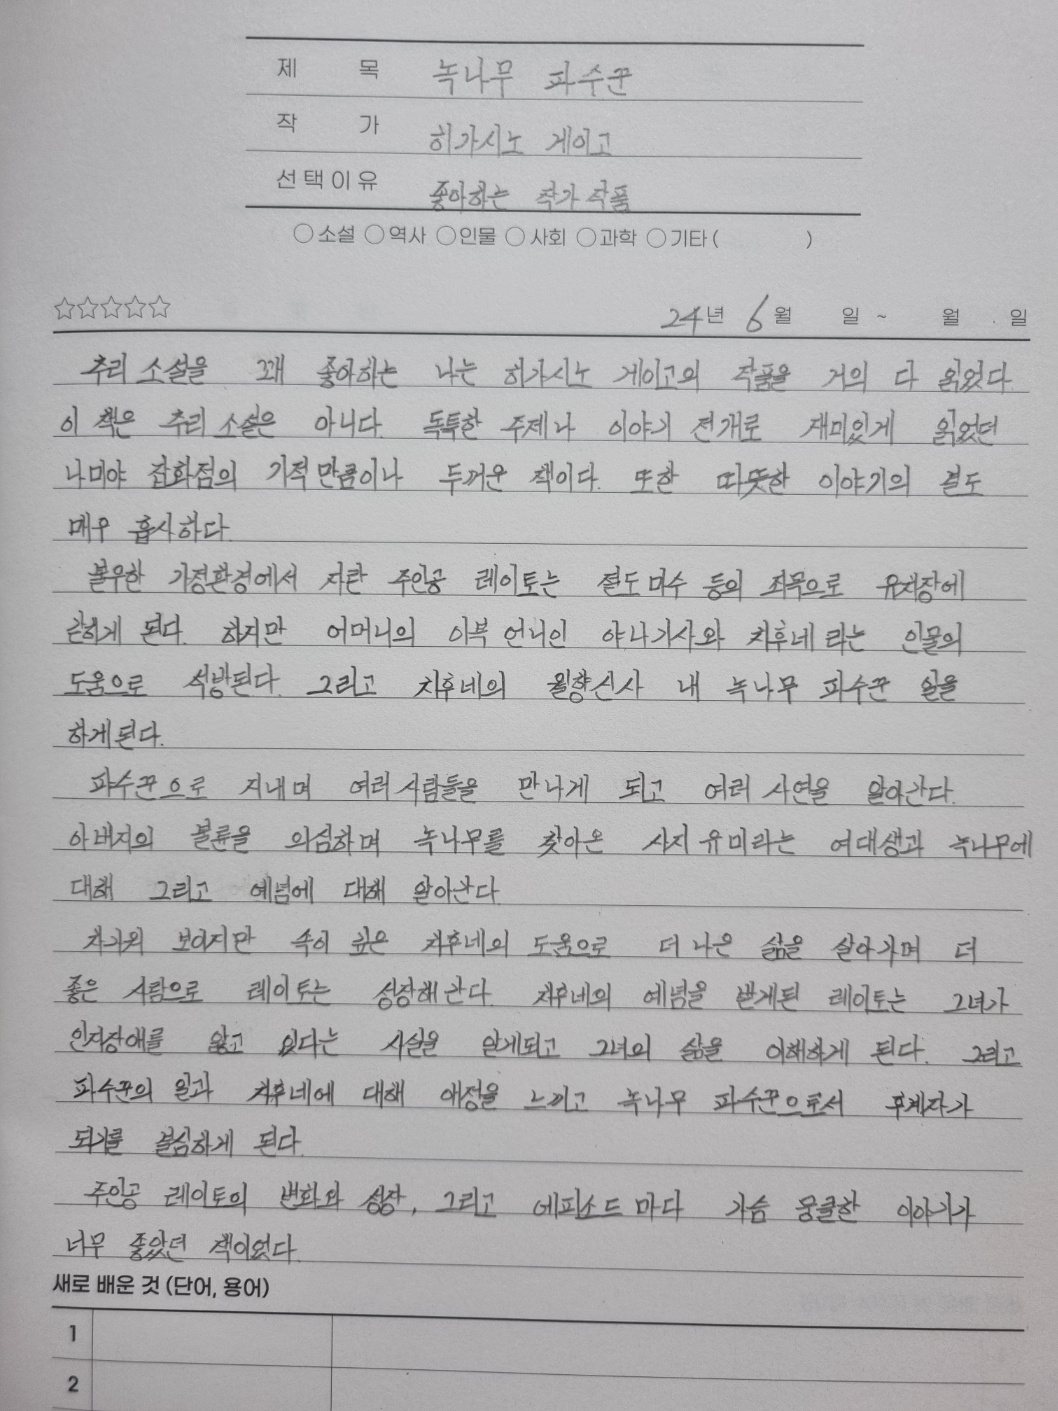 제 목 녹나무 파수꾼
작 가 히가시노 게이고
선택이유 좋아하는 작가 작품
○소설 ○역사 ○인물 ○사회 ○과학 ○기타( )
☆☆☆☆☆ 24년 6월 일 ~ 월 일
추리 소설을 꽤 좋아하는 나는 히가시노 게이고의 작품을 거의 다 읽었다.
이 책은 추리 소설은 아니다. 독특한 주제나 이야기 전개로 재미있게 읽었던
나미야 잡화점의 기적만큼이나 두꺼운 책이다. 또한 따뜻한 이야기의 결도
매우 흡사하다.
불우한 가정환경에서 자란 주인공 레이토는 절도미수 등의 죄목으로 유치장에
갇히게 된다. 하지만 어머니의 이복 언니인 야나기사와 치후네라는 인물의
도움으로 석방된다. 그리고 치후네의 월향신사 내 녹나무 파수꾼 일을
하게된다.
파수꾼으로 지내며 여러 사람들을 만나게 되고 여러 사연을 알아간다.
아버지의 불륜을 의심하며 녹나무를 찾아온 사지 유미라는 여대생과 녹나무에
대해 그리고 예념에 대해 알아간다.
차가워 보이지만 속이 깊은 치후네의 도움으로 더 나은 삶을 살아가며 더
좋은 사람으로 레이토는 성장해 간다. 치후네의 예념을 받게된 레이토는 그녀가
인지장애를 앓고 있다는 사실을 알게되고 그녀의 삶을 이해하게 된다. 그리고
파수꾼의 일과 치후네에 대해 애정을 느끼고 녹나무 파수꾼으로서 후계자가
되기를 결심하게 된다.
주인공 레이토의 변화와 성장, 그리고 에피소드마다 가슴 뭉클한 이야기가
너무 좋았던 책이었다.
새로 배운 것 (단어, 용어)
1
2